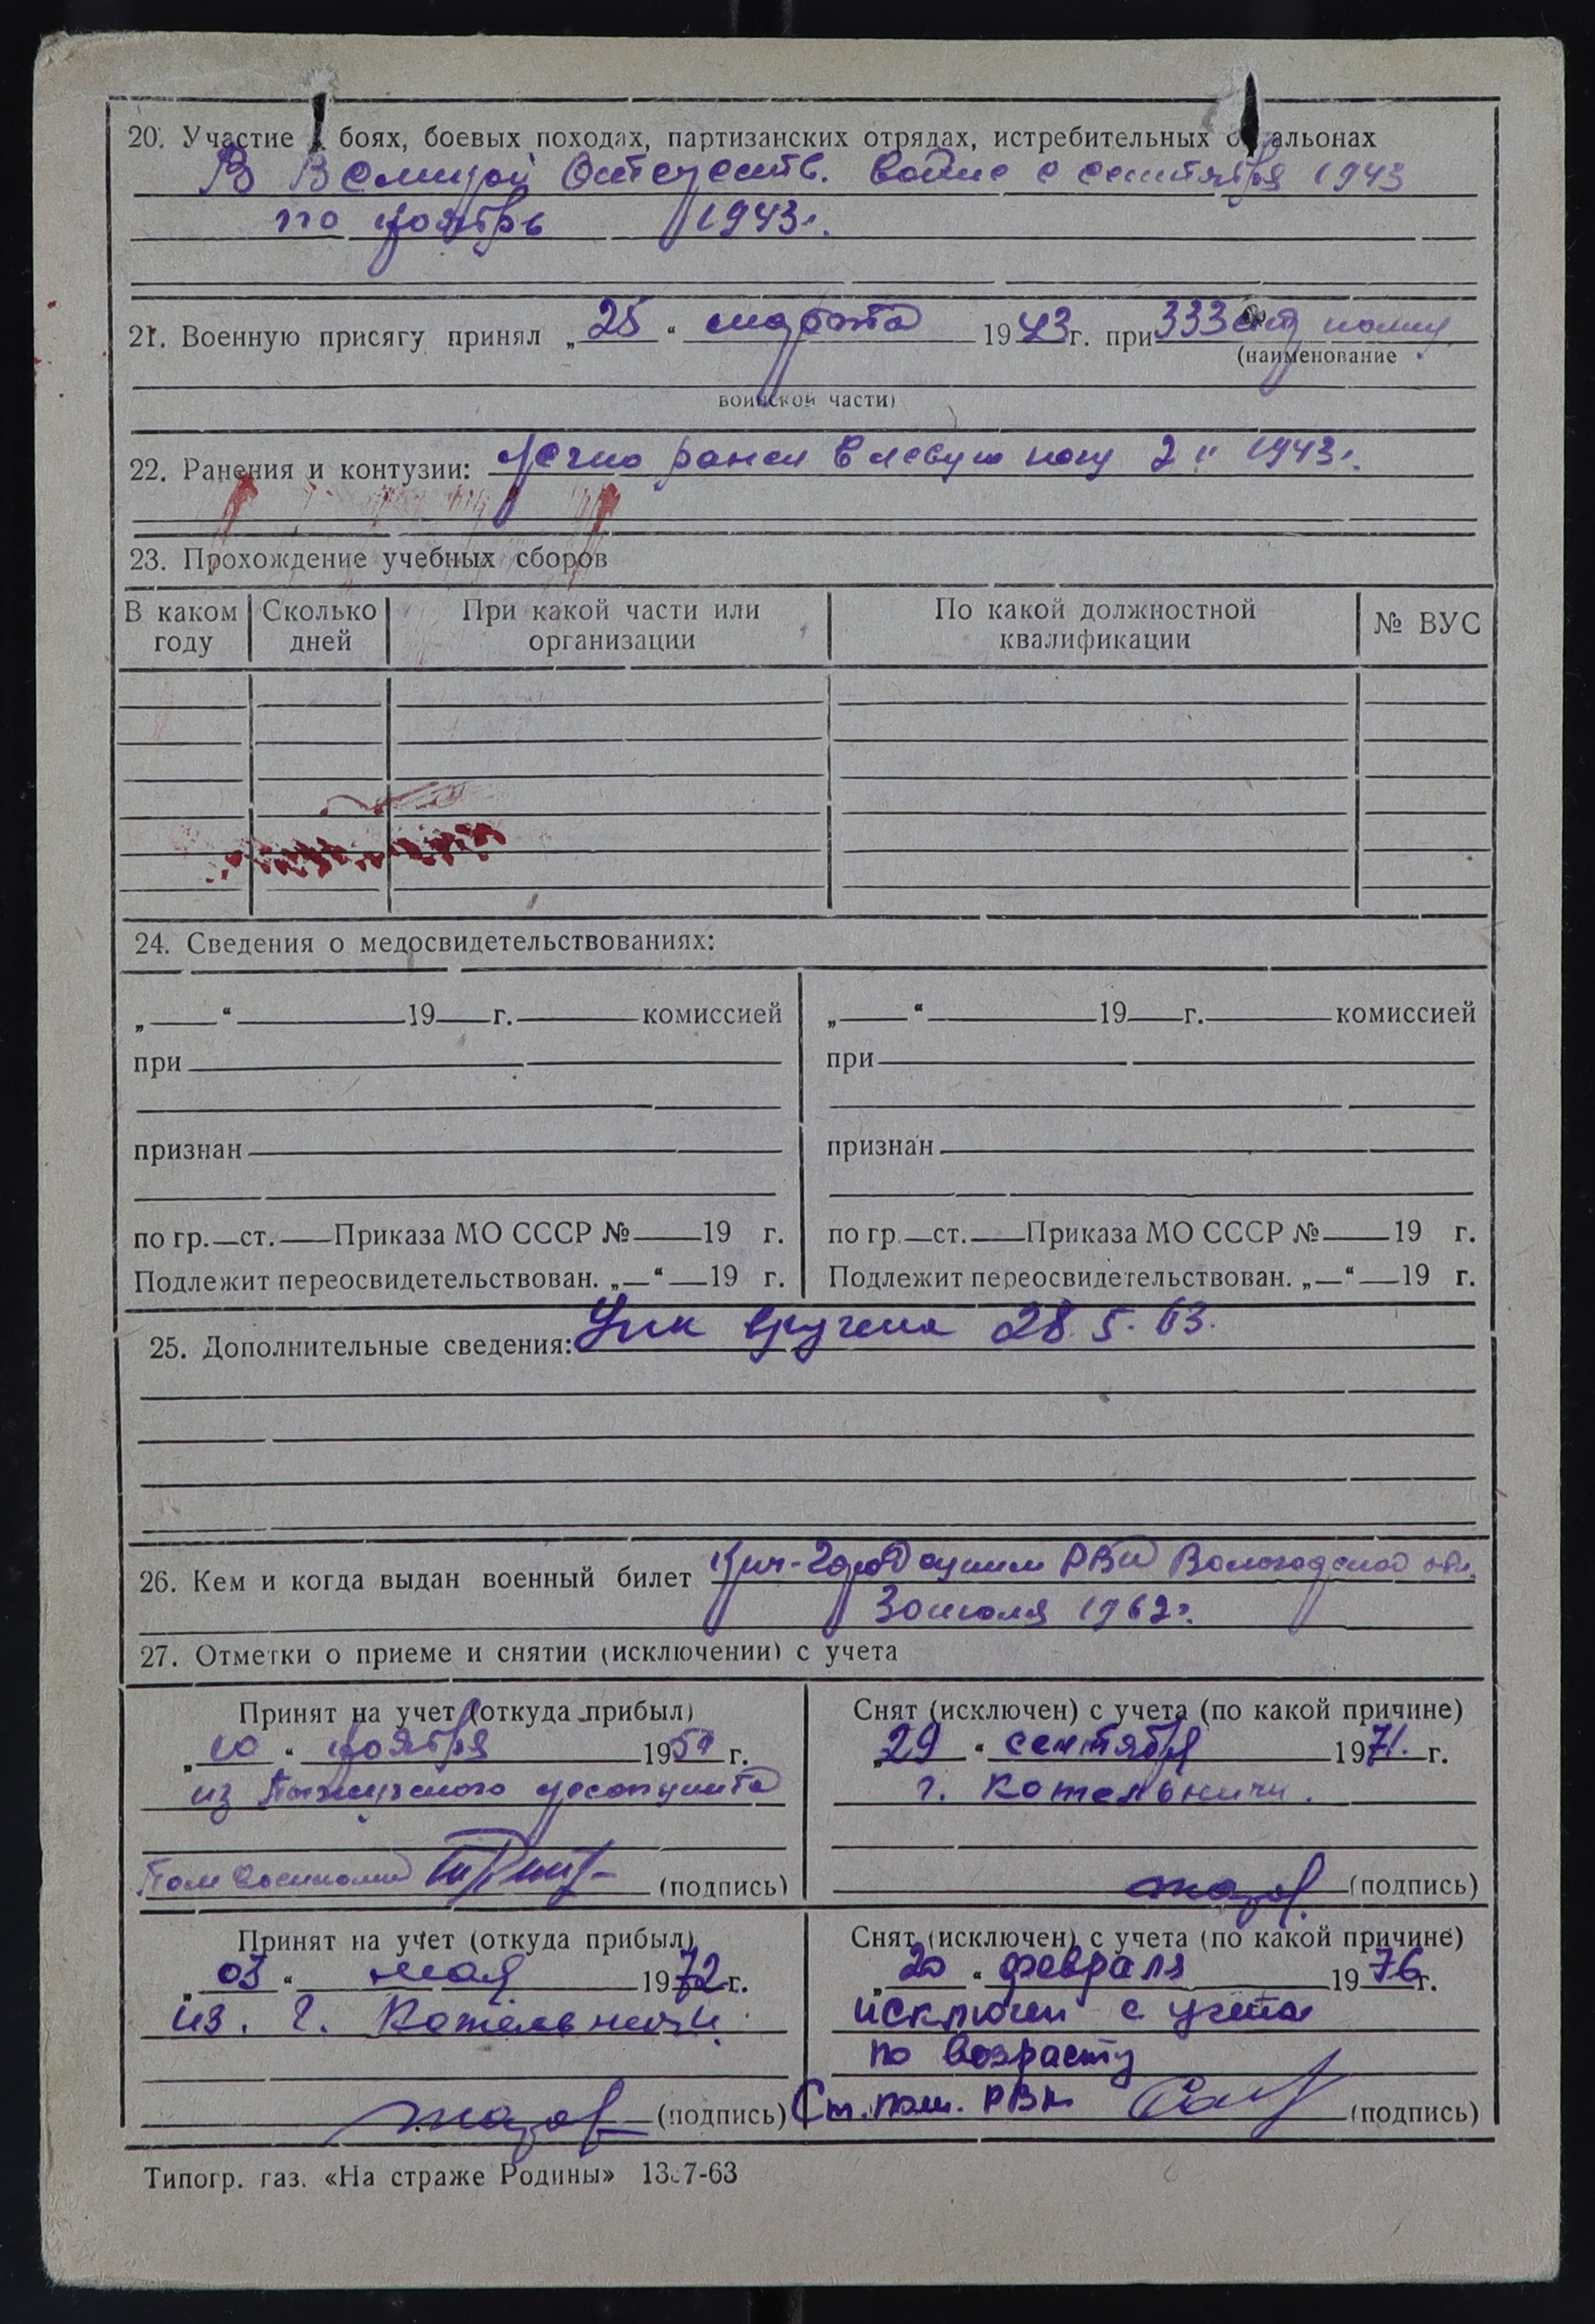 20. Участие в боях, боевых походах, партизанских отрядах, истребительных альонах
В Великой Отечеств. войне с сентября 1943
по ноябрь 1943г.
21. Военную присягу принял „25“ марта 1943 г. при 333 полку
(наименование
воинской части)
22. Ранения и контузии: Легко ранен в левую ногу 2 11 1943г.
23. Прохождение учебных сборов
В каком году
Сколько дней
При какой части или организации
По какой должностной квалификации
№ ВУС
24. Сведения о медосвидетельствованиях:
„ “ 19 г. комиссией
при
признан
по гр. ст. Приказа МО СССР № 19 г.
Подлежит переосвидетельствован. „ “ 19 г.
„ “ 19 г. комиссией
при
признан
по гр. ст. Приказа МО СССР № 19 г.
Подлежит переосвидетельствован. „ “ 19 г.
25. Дополнительные сведения: вручена 28.5.63.
26. Кем и когда выдан военный билет Кич-Городецким РВК Вологодской обл.
30 июля 1962г.
27. Отметки о приеме и снятии (исключении) с учета
Принят на учет (откуда прибыл)
„10“ ноября 1950 г.
из
Пом
(подпись)
Снят (исключен) с учета (по какой причине)
„29“ сентября 1971. г.
г. Котельничи.
(подпись)
Принят на учет (откуда прибыл)
„03“ мая 1972 г.
из. г. Котельничи.
(подпись)
Снят (исключен) с учета (по какой причине)
„20“ февраля 1976 г.
исключен с учета
по возрасту
Ст. пом. РВК
(подпись)
Типогр. газ. «На страже Родины»